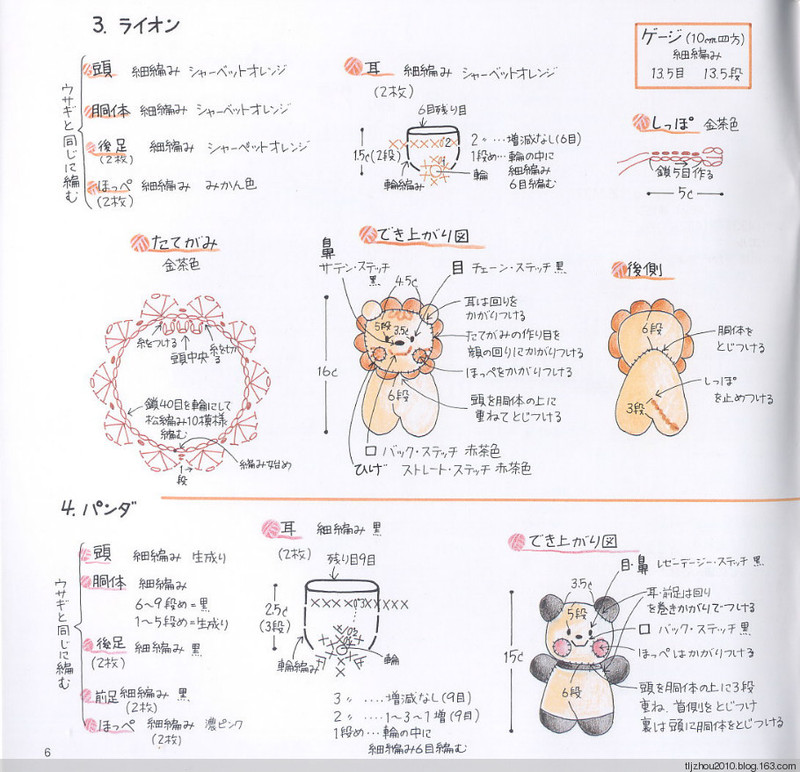 3. ライオン
ウサギと同じに編む
頭 細編み シャーベットオレンジ
胴体 細編み シャーベットオレンジ
後足 細編み シャーベットオレンジ
(2枚)
ほっぺ 細編み みかん色
(2枚)
耳 細編み シャーベットオレンジ
(2枚)
6目残り目
1.5c(2段)
輪編み
輪
2〃…増減なし(6目)
1段め…輪の中に
細編み
6目編む
ゲージ(10cm四方)
細編み
13.5目 13.5段
しっぽ 金茶色
鎖5目作る
5c
たてがみ
金茶色
糸をつける
糸を切る
頭中央
鎖40目を輪にして
松編み10模様
編む
編み始め
1段
でき上がり図
鼻
サテン・ステッチ
黒
目 チェーン・ステッチ 黒
4.5c
5段
3.5c
6段
16c
耳は回りを
かがりつける
たてがみの作り目を
顔の回りにかがりつける
ほっぺをかがりつける
頭を胴体の上に
重ねてとじつける
口 バック・ステッチ 赤茶色
ひげ ストレート・ステッチ 赤茶色
後側
6段
3段
胴体を
とじつける
しっぽ
を止めつける
4. パンダ
ウサギと同じに編む
頭 細編み 生成り
胴体 細編み
6〜9段め=黒
1〜5段め=生成り
後足 細編み 黒
(2枚)
前足 細編み 黒
(2枚)
ほっぺ 細編み 濃ピンク
(2枚)
耳 細編み 黒
(2枚)
残り目9目
2.5c
(3段)
輪編み
輪
3〃‥‥増減なし(9目)
2〃‥‥1〜3〜1増(9目)
1段め…輪の中に
細編み6目編む
でき上がり図
目・鼻 レゼーデージー・ステッチ 黒
3.5c
5段
6段
15c
耳・前足は回り
を巻きかがりでつける
口 バック・ステッチ 黒
ほっぺはかがりつける
頭を胴体の上に3段
重ね、首側をとじつけ
裏は頭に胴体をとじつける
6
tljzhou2010.blog.163.com